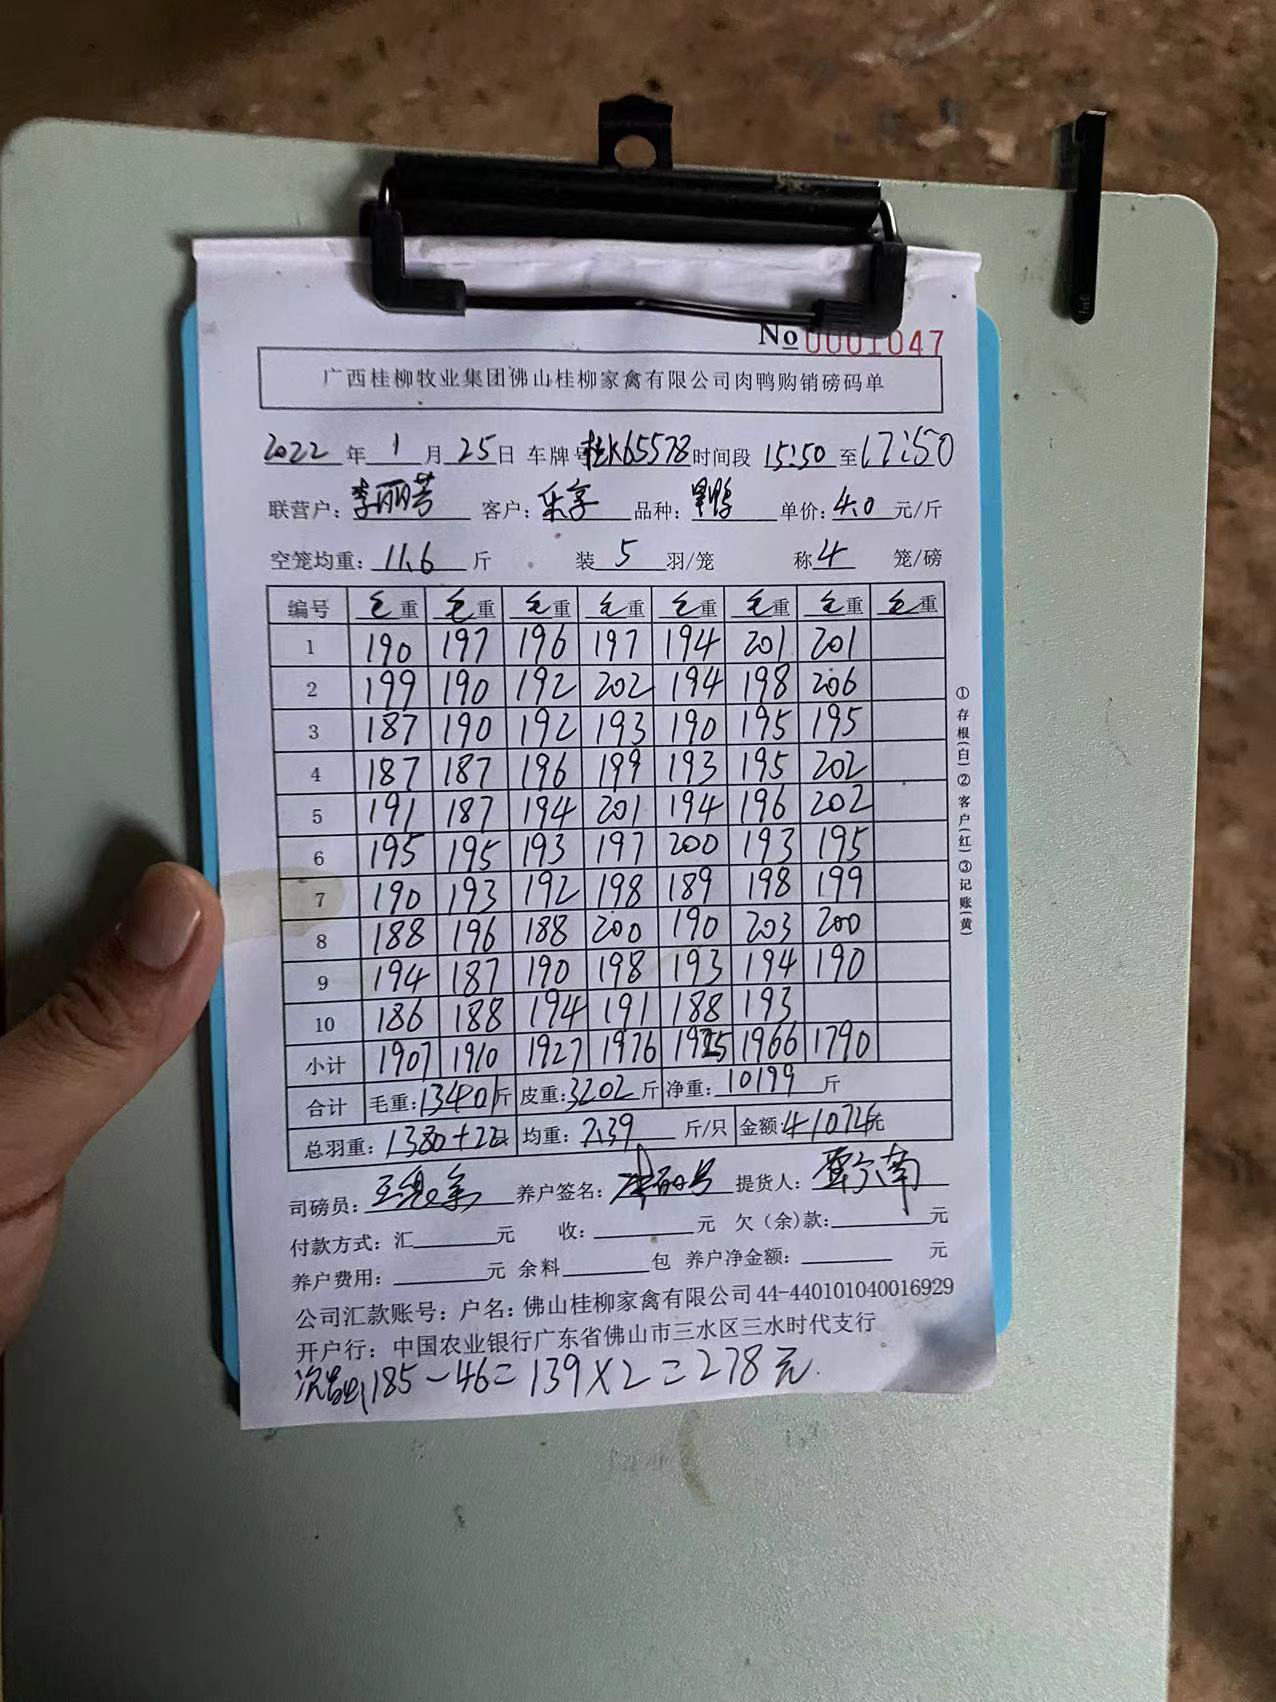 No 0001047
广西桂柳牧业集团佛山桂柳家禽有限公司肉鸭购销磅码单
2022 年 1 月 25 日 车牌号 桂K65578 时间段 15:50 至 17:50
联营户: 李丽芳 客户: 乐享 品种: 鸭 单价: 4.0 元/斤
空笼均重: 11.6 斤 装 5 羽/笼 称 4 笼/磅
编号 毛重 毛重 毛重 毛重 毛重 毛重 毛重 毛重
1 190 197 196 197 194 201 201
2 199 190 192 202 194 198 206
3 187 190 192 193 190 195 195
4 187 187 196 199 193 195 202
5 191 187 194 201 194 196 202
6 195 195 193 197 200 193 195
7 190 193 192 198 189 198 199
8 188 196 188 200 190 203 200
9 194 187 190 198 193 194 190
10 186 188 194 191 188 193
小计 1907 1910 1927 1976 1925 1966 1790
合计 毛重: 13401 斤 皮重: 3202 斤 净重: 10199 斤
总羽重: 1380+22 均重: 7.39 斤/只 金额: 41074 元
司磅员: 养户签名: 提货人:
付款方式: 汇 元 收: 元 欠(余)款: 元
养户费用: 元 余料 包 养户净金额: 元
公司汇款账号: 户名: 佛山桂柳家禽有限公司 44-440101040016929
开户行: 中国农业银行广东省佛山市三水区三水时代支行
185-46=139×2=278元.
①存根(白)②客户(红)③记账(黄)